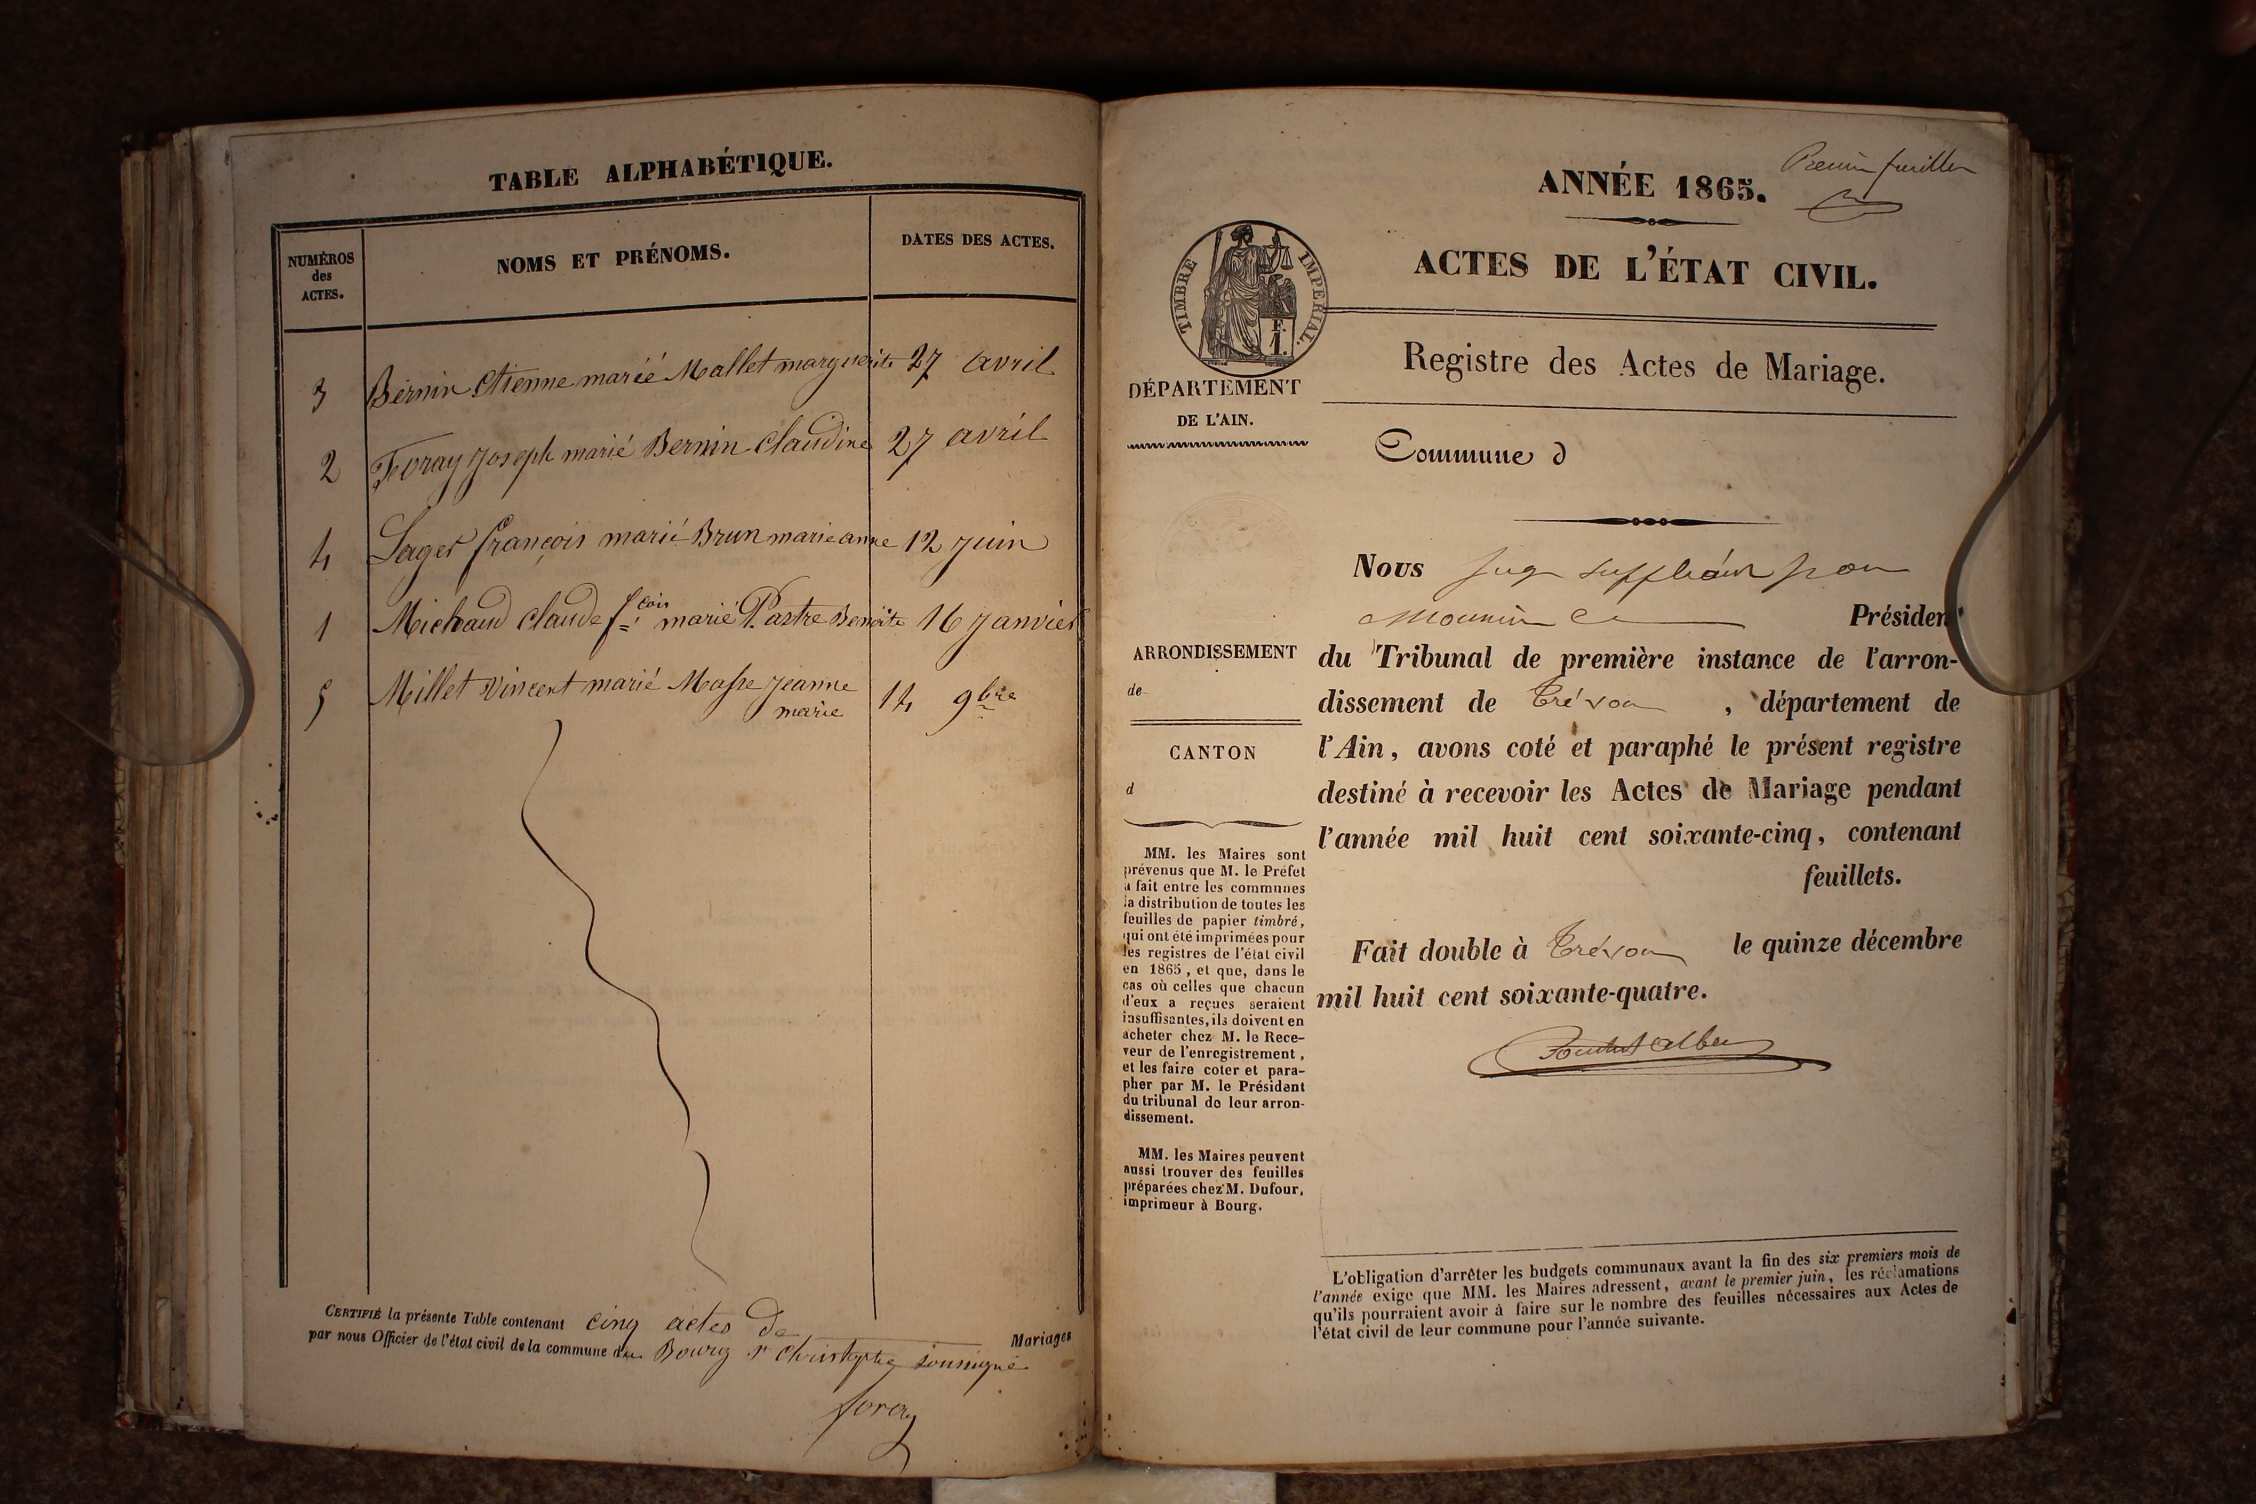 TABLE ALPHABÉTIQUE.
NUMÉROS
des
ACTES.
NOMS ET PRÉNOMS.
DATES DES ACTES.
3 Bernin Etienne marié Mallet marguerite 27 avril
2 Foray Joseph marié Bernin Claudine 27 avril
4 Sager françois marié Brun marie anne 12 juin
1 Michaud Claude f.çois marié Pastre Benoite 16 janvier
5 Millet Vincent marié Masse Jeanne 14 9bre
marie
CERTIFIÉ la présente Table contenant cinq actes de Mariages
par nous Officier de l'état civil de la commune du Bourg St Christophe soussigné
foray
feuillet
ANNÉE 1865.
ACTES DE L'ÉTAT CIVIL.
TIMBRE IMPÉRIAL.
F.
1.
Registre des Actes de Mariage.
DÉPARTEMENT
DE L'AIN.
Commune d
Nous juge suppléant pour
Président
ARRONDISSEMENT
de
CANTON
d
du Tribunal de première instance de l'arron-
dissement de Trévoux, département de
l'Ain, avons coté et paraphé le présent registre
destiné à recevoir les Actes de Mariage pendant
l'année mil huit cent soixante-cinq, contenant
feuillets.
Fait double à Trévoux le quinze décembre
mil huit cent soixante-quatre.
MM. les Maires sont
prévenus que M. le Préfet
a fait entre les communes
la distribution de toutes les
feuilles de papier timbré,
qui ont été imprimées pour
les registres de l'état civil
en 1865, et que, dans le
cas où celles que chacun
d'eux a reçues seraient
insuffisantes, ils doivent en
acheter chez M. le Rece-
veur de l'enregistrement,
et les faire coter et para-
pher par M. le Président
du tribunal de leur arron-
dissement.
MM. les Maires peuvent
aussi trouver des feuilles
préparées chez M. Dufour,
imprimeur à Bourg.
L'obligation d'arrêter les budgets communaux avant la fin des six premiers mois de
l'année exige que MM. les Maires adressent, avant le premier juin, les réclamations
qu'ils pourraient avoir à faire sur le nombre des feuilles nécessaires aux Actes de
l'état civil de leur commune pour l'année suivante.